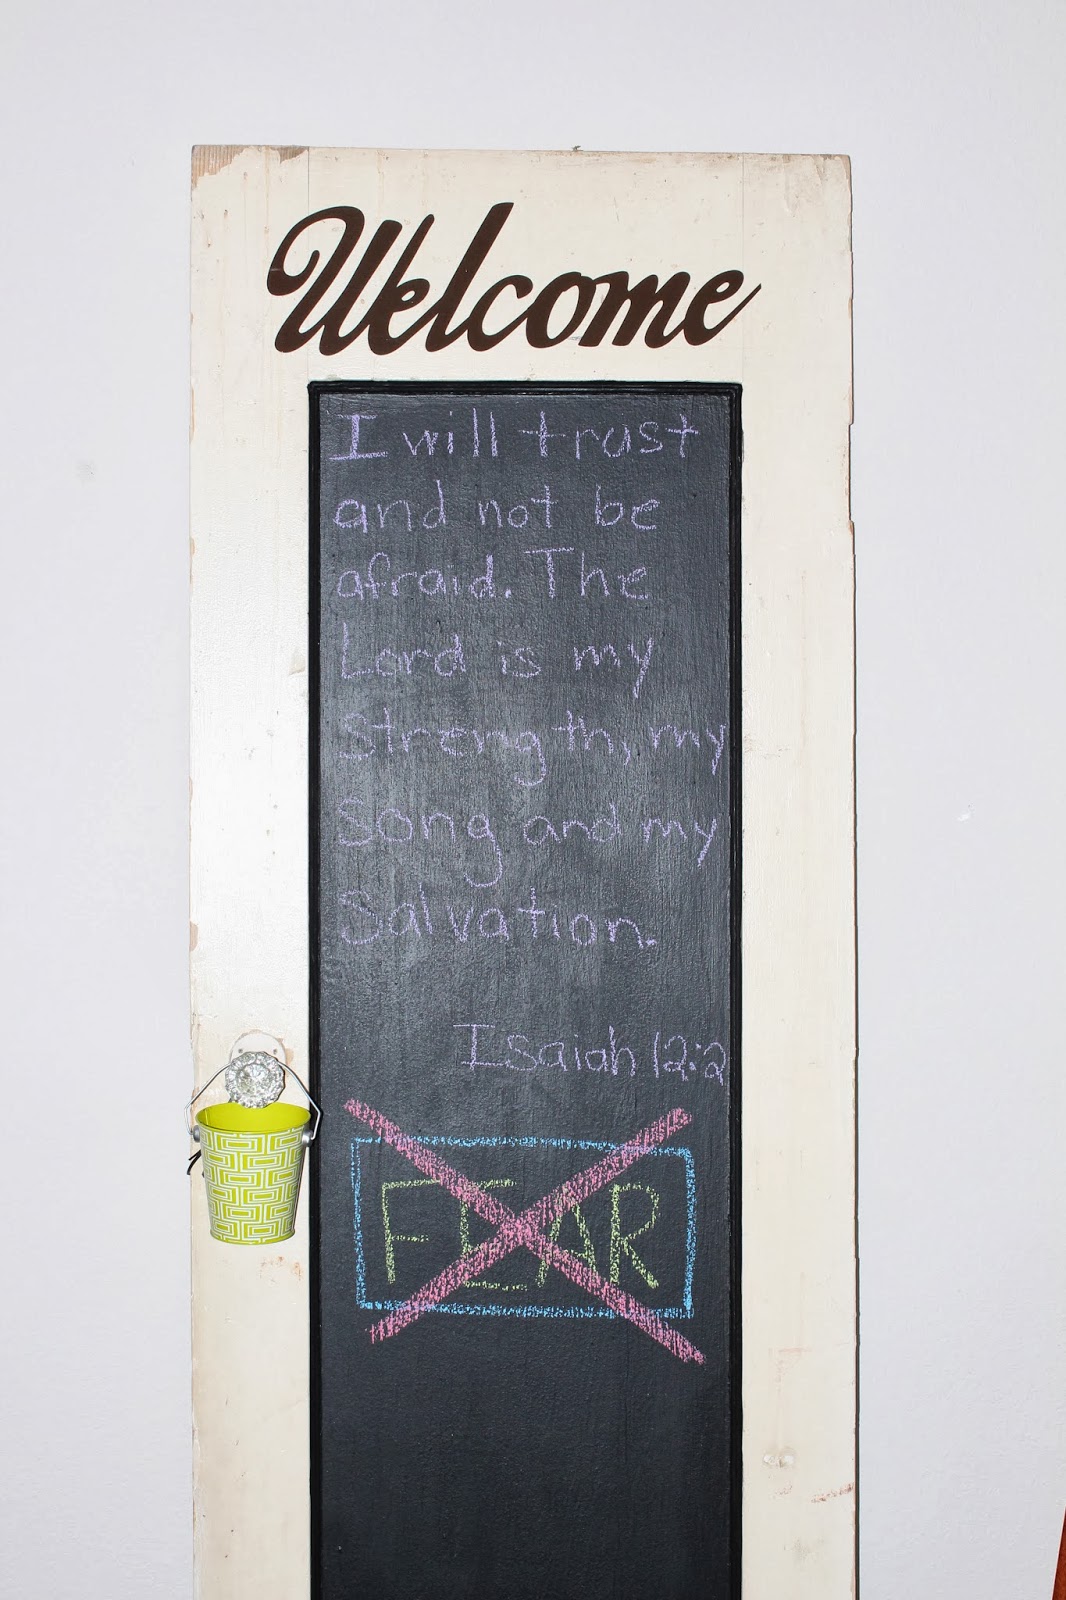 Welcome
I will trust
and not be
afraid. The
Lord is my
Strength, my
Song and my
Salvation.
Isaiah 12:2
FEAR